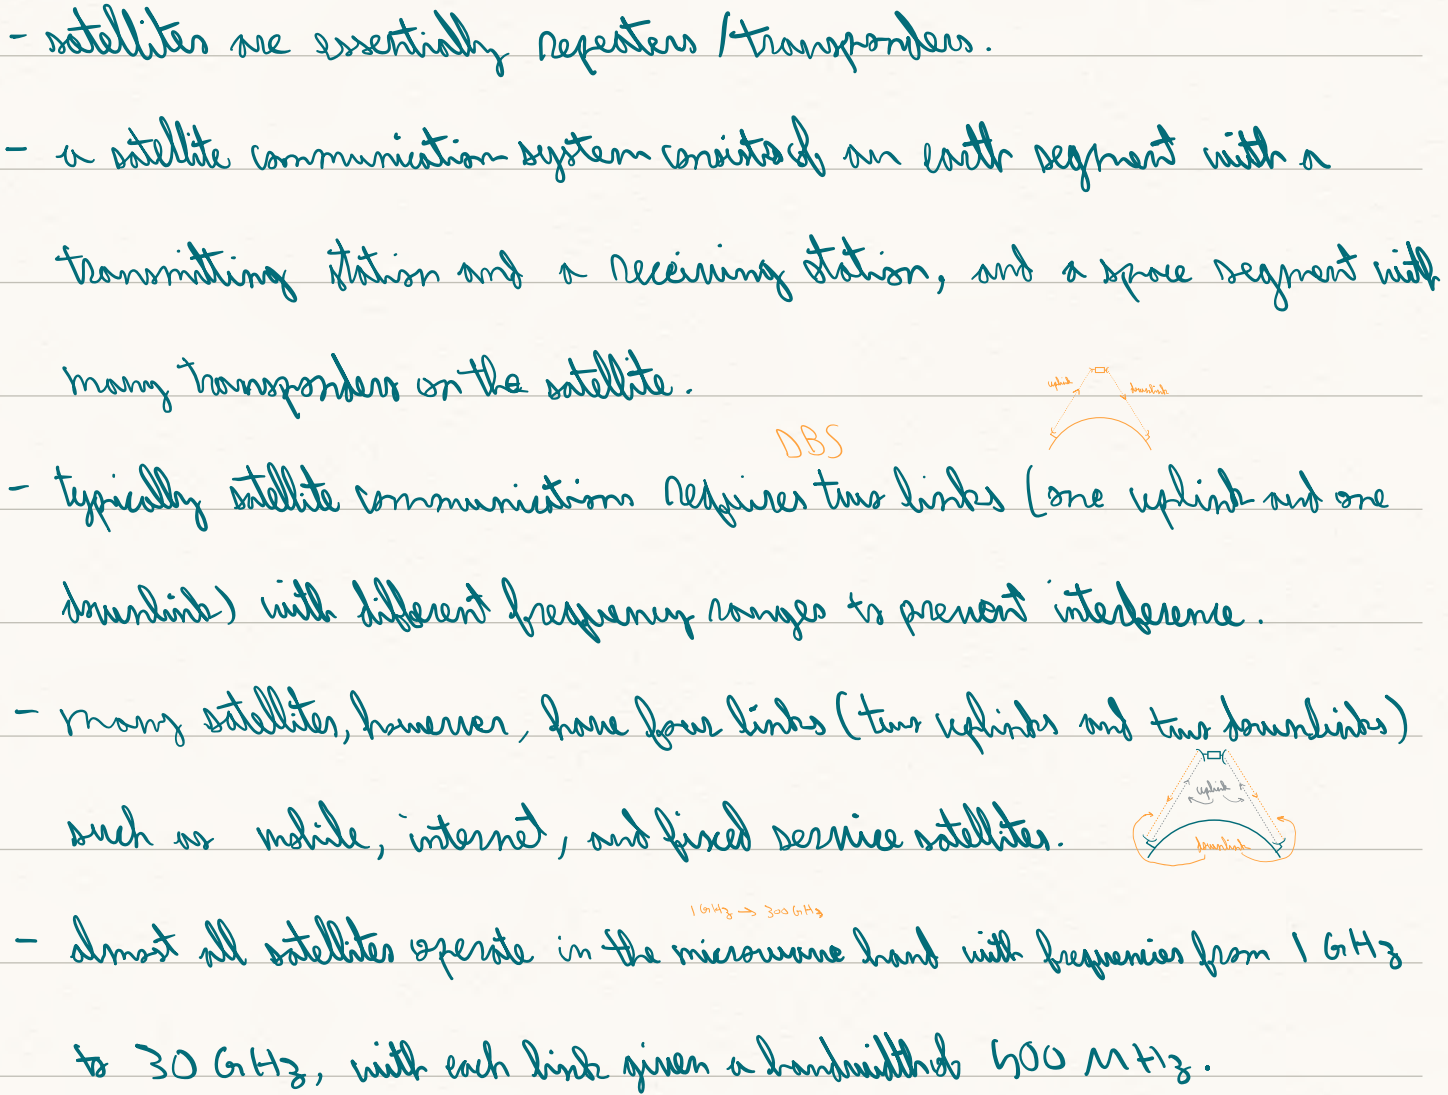 - satellites are essentially repeaters / transponders.
- a satellite communication system consists of an earth segment with a
transmitting station and a receiving station, and a space segment with
many transponders on the satellite.
uplink downlink
DBS
- typically satellite communications requires two links (one uplink and one
downlink) with different frequency ranges to prevent interference.
- many satellites, however, have four links (two uplinks and two downlinks)
uplink
such as mobile, internet, and fixed service satellites.
downlink
1 GHz → 300 GHz
- almost all satellites operate in the microwave band with frequencies from 1 GHz
to 30 GHz, with each link given a bandwidth of 500 MHz.